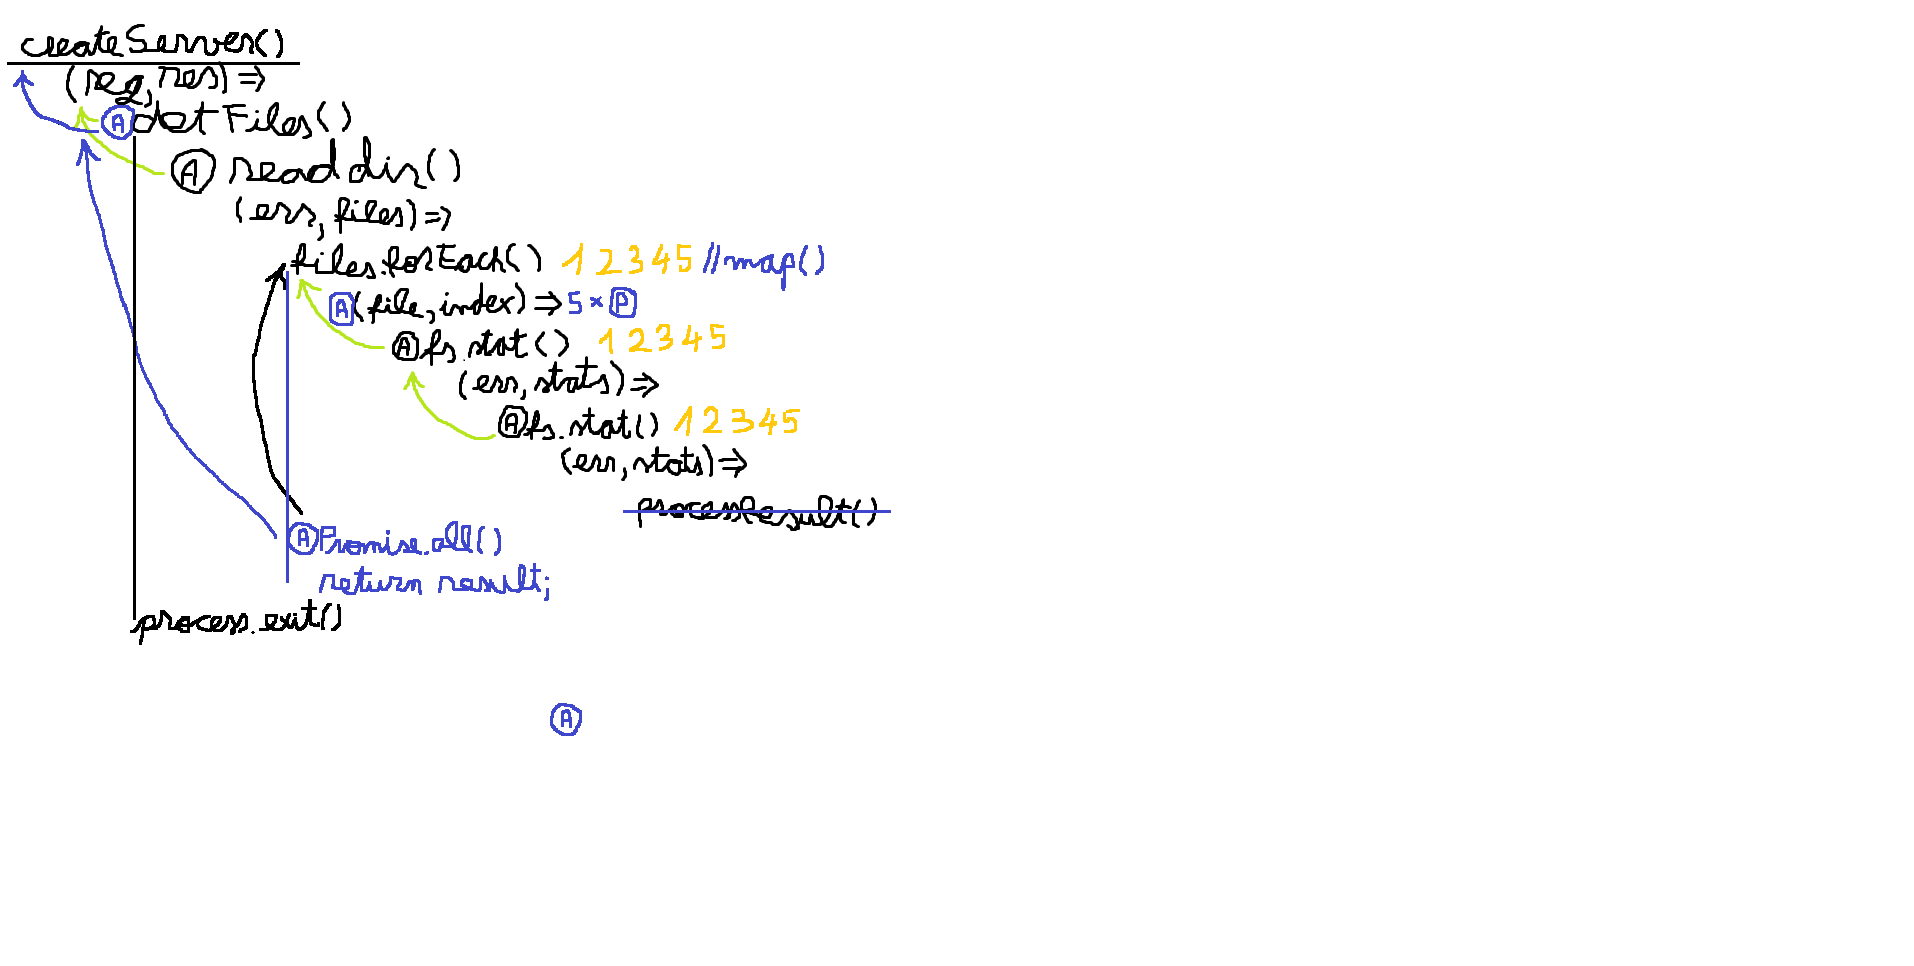 createServer()
(req, res) =>
A dotFiles()
A readdir()
(err, files) =>
files.forEach() 1 2 3 4 5 //map()
A (file, index) => 5 × P
A fs.stat() 1 2 3 4 5
(err, stats) =>
A fs.stat() 1 2 3 4 5
(err, stats) =>
processResult()
A Promise.all()
return result;
process.exit()
A